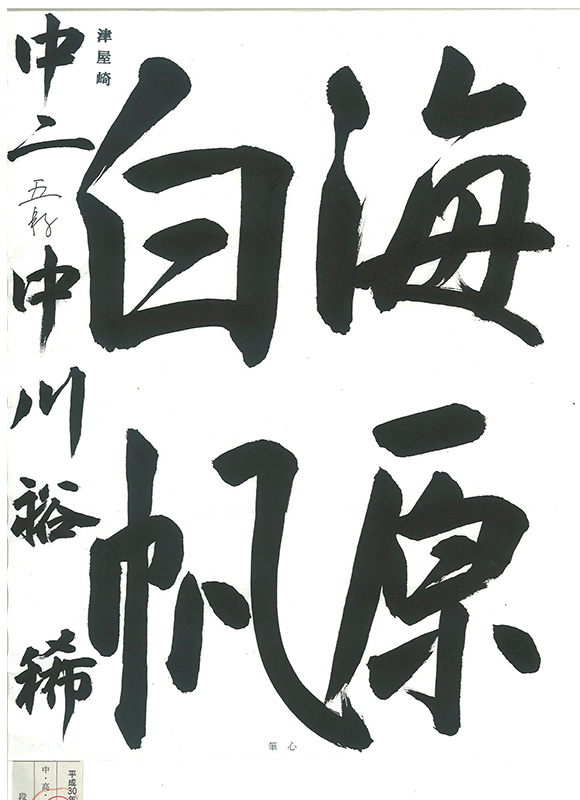 海原
白帆
津屋崎
中二 五段 中川裕稀
心筆
平成30年
中・高・
段